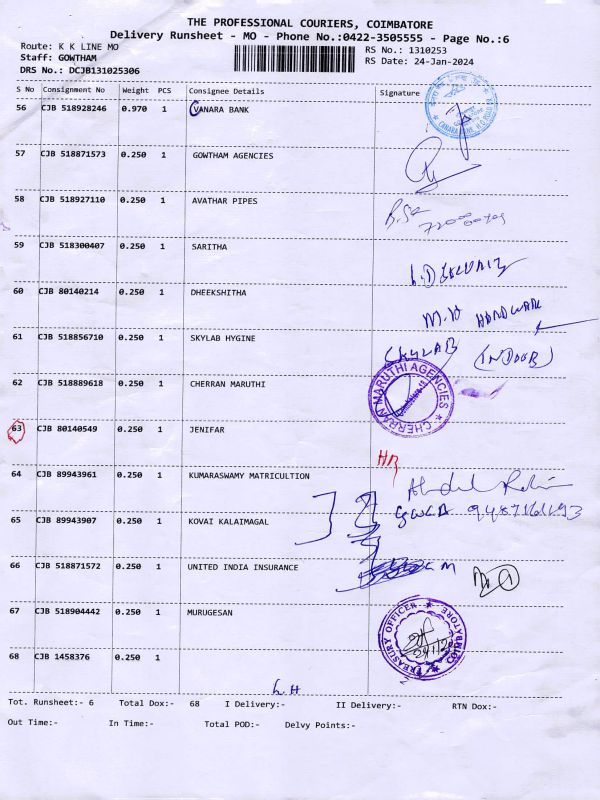 THE PROFESSIONAL COURIERS, COIMBATORE
Delivery Runsheet - MO - Phone No.:0422-3505555 - Page No.:6
Route: K K LINE MO
RS No.: 1310253
Staff: GOWTHAM
RS Date: 24-Jan-2024
DRS No.: DCJB131025306
S No Consignment No Weight PCS Consignee Details Signature
56 CJB 518928246 0.970 1 CANARA BANK
57 CJB 518871573 0.250 1 GOWTHAM AGENCIES
58 CJB 518927110 0.250 1 AVATHAR PIPES
59 CJB 518300407 0.250 1 SARITHA
60 CJB 80140214 0.250 1 DHEEKSHITHA
M.H HARDWARE
61 CJB 518856710 0.250 1 SKYLAB HYGINE
SKYLAB (INDOOR)
62 CJB 518889618 0.250 1 CHERRAN MARUTHI
CHERRAN MARUTHI AGENCIES
63 CJB 80140549 0.250 1 JENIFAR
64 CJB 89943961 0.250 1 KUMARASWAMY MATRICULTION
65 CJB 89943907 0.250 1 KOVAI KALAIMAGAL
66 CJB 518871572 0.250 1 UNITED INDIA INSURANCE
67 CJB 518904442 0.250 1 MURUGESAN
TREASURY OFFICER COIMBATORE
68 CJB 1458376 0.250 1
L H
Tot. Runsheet:- 6 Total Dox:- 68 I Delivery:- II Delivery:- RTN Dox:-
Out Time:- In Time:- Total POD:- Delvy Points:-